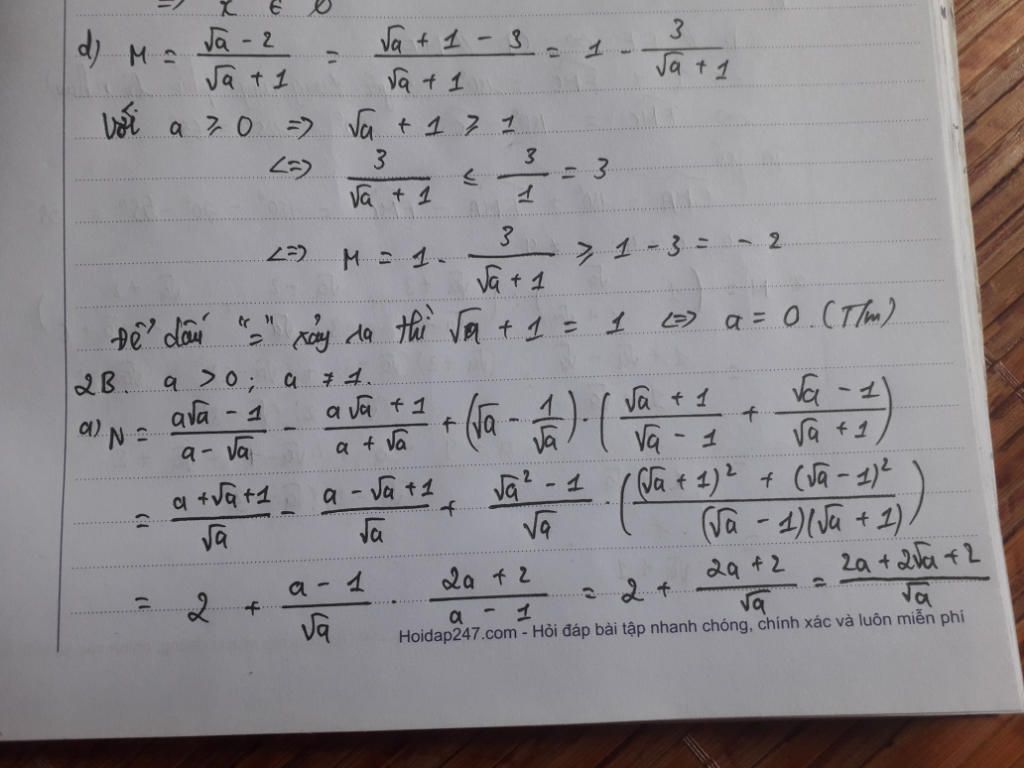 => x ∈ ∅
d) M = (√a - 2)/(√a + 1) = (√a + 1 - 3)/(√a + 1) = 1 - 3/(√a + 1)
Với a ≥ 0 => √a + 1 ≥ 1
<=> 3/(√a + 1) ≤ 3/1 = 3
<=> M = 1 - 3/(√a + 1) ≥ 1 - 3 = - 2
Để dấu "=" xảy ra thì √a + 1 = 1 <=> a = 0. (T/m)
2B. a > 0; a ≠ 1.
a) N = (a√a - 1)/(a - √a) - (a√a + 1)/(a + √a) + (√a - 1/√a) . ((√a + 1)/(√a - 1) + (√a - 1)/(√a + 1))
= (a + √a + 1)/√a - (a - √a + 1)/√a + (√a² - 1)/√a . (((√a + 1)² + (√a - 1)²)/((√a - 1)(√a + 1)))
= 2 + (a - 1)/√a . (2a + 2)/(a - 1) = 2 + (2a + 2)/√a = (2a + 2√a + 2)/√a
Hoidap247.com - Hỏi đáp bài tập nhanh chóng, chính xác và luôn miễn phí